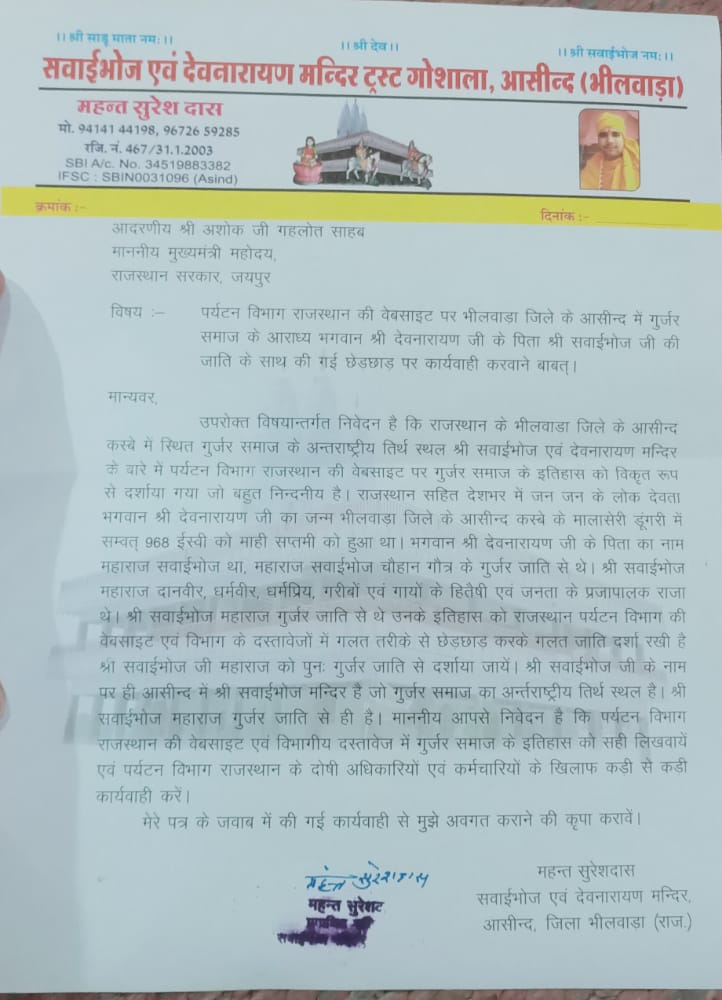 ।। श्री साडू माता नमः।।
।।श्री देव।।
।।श्री सवाईभोज नमः।।
सवाईभोज एवं देवनारायण मन्दिर ट्रस्ट गोशाला, आसीन्द (भीलवाड़ा)
महन्त सुरेश दास
मो. 94141 44198, 96726 59285
रजि. नं. 467/31.1.2003
SBI A/c. No. 34519883382
IFSC : SBIN0031096 (Asind)
क्रमांक :-
दिनांक :-
आदरणीय श्री अशोक जी गहलोत साहब
माननीय मुख्यमंत्री महोदय,
राजस्थान सरकार, जयपुर
विषय :– पर्यटन विभाग राजस्थान की वेबसाइट पर भीलवाडा जिले के आसीन्द में गुर्जर
समाज के आराध्य भगवान श्री देवनारायण जी के पिता श्री सवाईभोज जी की
जाति के साथ की गई छेड़छाड़ पर कार्यवाही करवाने बाबत्।
मान्यवर,
उपरोक्त विषयान्तर्गत निवेदन है कि राजस्थान के भीलवाडा जिले के आसीन्द
कस्बे में स्थित गुर्जर समाज के अन्तराष्ट्रीय तिर्थ स्थल श्री सवाईभोज एवं देवनारायण मन्दिर
के बारे में पर्यटन विभाग राजस्थान की वेबसाइट पर गुर्जर समाज के इतिहास को विकृत रूप
से दर्शाया गया जो बहुत निन्दनीय है। राजस्थान सहित देशभर में जन जन के लोक देवता
भगवान श्री देवनारायण जी का जन्म भीलवाडा जिले के आसीन्द कस्बे के मालासेरी डूंगरी में
सम्वत् 968 ईस्वी को माही सप्तमी को हुआ था। भगवान श्री देवनारायण जी के पिता का नाम
महाराज सवाईभोज था, महाराज सवाईभोज चौहान गौत्र के गुर्जर जाति से थे। श्री सवाईभोज
महाराज दानवीर, धर्मवीर, धर्मप्रिय, गरीबों एवं गायों के हितैषी एवं जनता के प्रजापालक राजा
थे। श्री सवाईभोज महाराज गुर्जर जाति से थे उनके इतिहास को राजस्थान पर्यटन विभाग की
वेबसाइट एवं विभाग के दस्तावेजों में गलत तरीके से छेड़छाड़ करके गलत जाति दर्शा रखी है
श्री सवाईभोज जी महाराज को पुनः गुर्जर जाति से दर्शाया जायें। श्री सवाईभोज जी के नाम
पर ही आसीन्द में श्री सवाईभोज मन्दिर है जो गुर्जर समाज का अर्न्तराष्ट्रीय तिर्थ स्थल है। श्री
सवाईभोज महाराज गुर्जर जाति से ही है। माननीय आपसे निवेदन है कि पर्यटन विभाग
राजस्थान की वेबसाइट एवं विभागीय दस्तावेज में गुर्जर समाज के इतिहास को सही लिखवायें
एवं पर्यटन विभाग राजस्थान के दोषी अधिकारियों एवं कर्मचारियों के खिलाफ कडी से कडी
कार्यवाही करें।
मेरे पत्र के जवाब में की गई कार्यवाही से मुझे अवगत कराने की कृपा करावें।
महन्त सुरेशदास
सवाईभोज एवं देवनारायण मन्दिर,
आसीन्द, जिला भीलवाडा (राज.)
महंत सुरेशदास
महन्त सुरेश